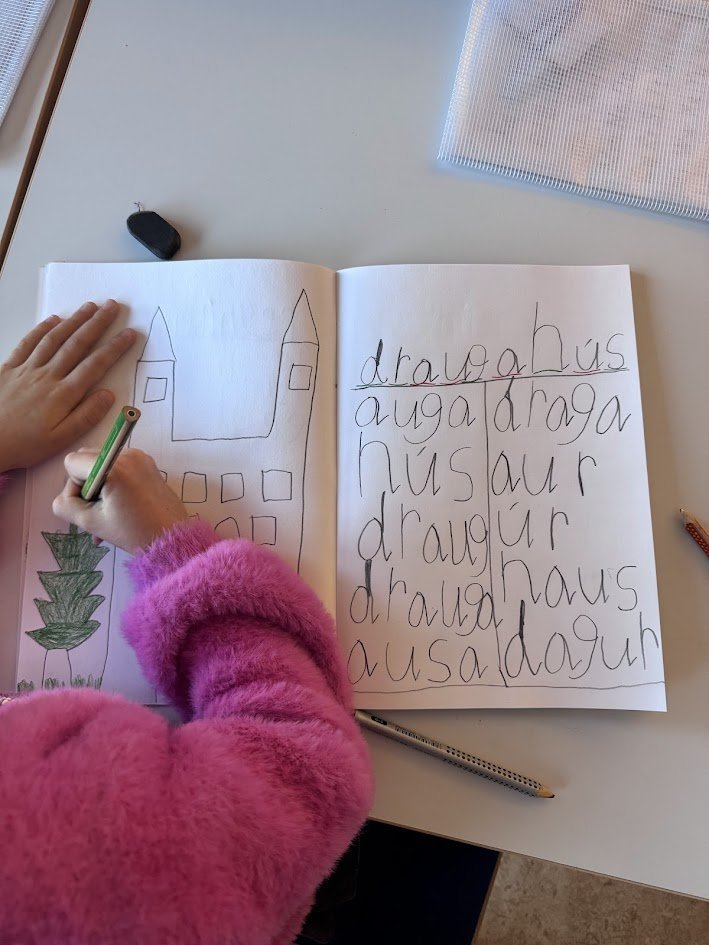 draugahús
auga draga
hús aur
draug úr
drauga haus
ausa dagur